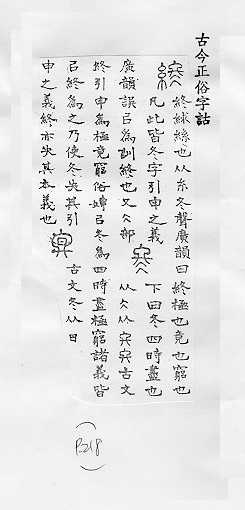 古今正俗字詁
終絿絲也从糸冬聲廣韻曰終極也竟也窮也
凡此皆冬字引申之義 下曰冬四時盡也
廣韻誤㠯為訓終也又仌部 从仌从 古文
終引申為極竟窮俗㠯冬為四時盡極窮諸義皆
㠯終為之乃使冬失其引 古文冬从日
申之義終亦失其本義也
(B218)